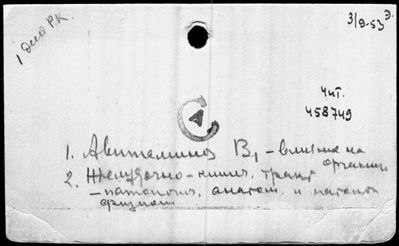 1 дил РК.
3/9-53 Э.
Чит.
458749
А
1. Авитаминоз В₁ - влияние на органы
2. Желудочно-кишч. тракт
- патологич. анатом. и патолог
физиол